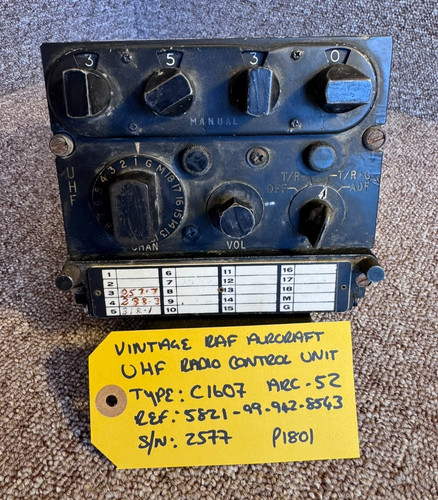 3 5 3 0
MANUAL
UHF
T/R T/R+G
OFF ADF
4 3 2 1 G M 18 17 16 15 14 13
CHAN VOL
1 6 11 16
2 7 12 17
3 257.7 8 13 18
4 288.3 9 14 M
5 10 15 G
VINTAGE RAF AURCRAFT
UHF RADIO CONTROL UNIT
TYPE: C1607 ARC-52
REF: 5821-99-942-8543
S/N: 2577 P1801